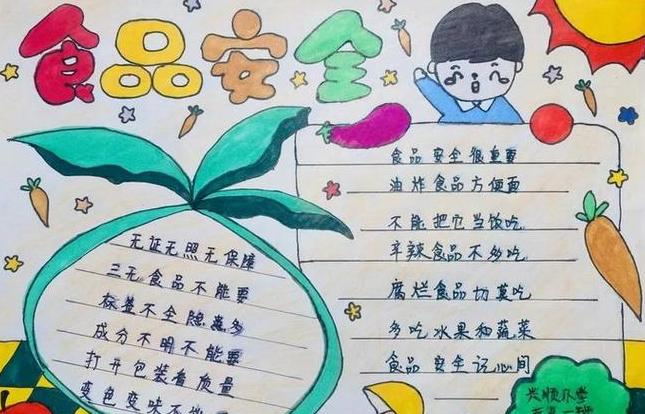 食品安全
无证无照无保障
三无食品不能要
标签不全隐患多
成分不明不能要
打开包装看质量
变色变味不
食品安全很重要
油炸食品方便面
不能把它当饭吃
辛辣食品不多吃
腐烂食品切莫吃
多吃水果和蔬菜
食品安全记心间
兴顺小学